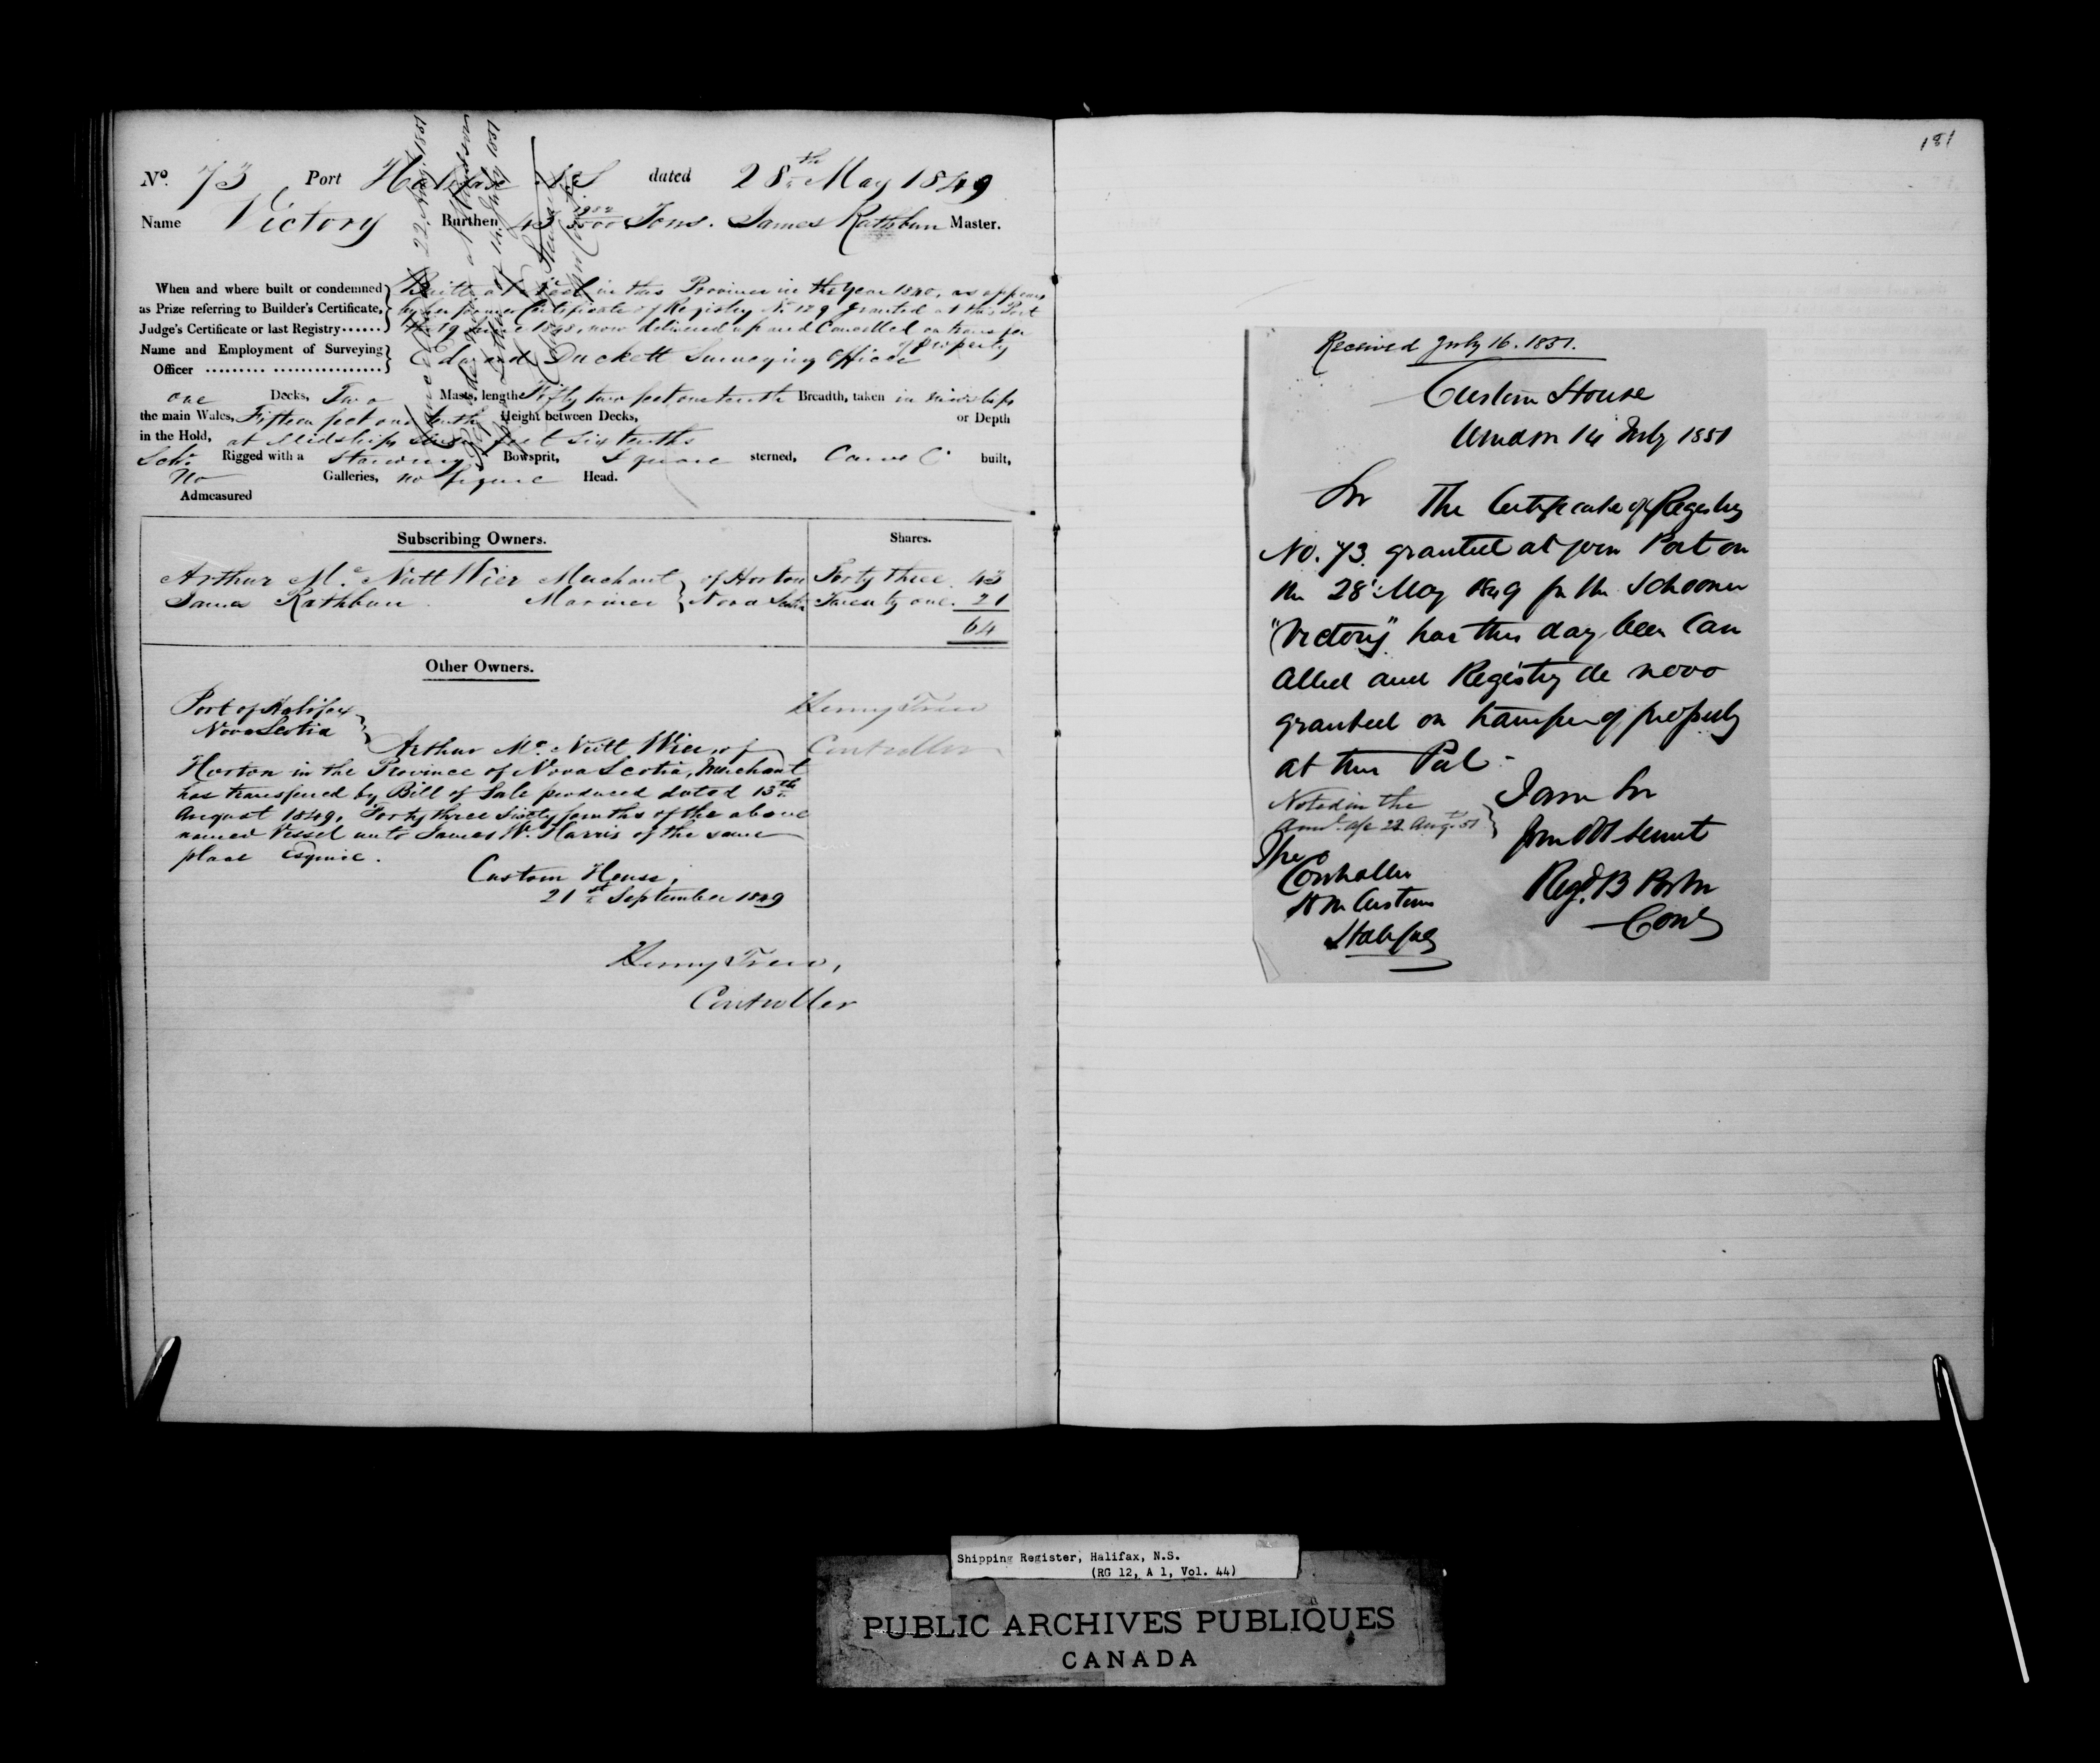 No. 73 Port Halifax N.S dated 28th May 1849
Name Victory Burthen 43 Tons. James Rathbun Master.
When and where built or condemned
as Prize referring to Builder's Certificate,
Judge's Certificate or last Registry
Built at in this Province in the Year 1840, as appears
by her former Certificate of Registry No 129 granted at this Port
the 19 1848, now delivered up and Cancelled on transfer
of Property
Name and Employment of Surveying
Officer
Edward Duckett Surveying Officer
one Decks, Two Masts, length Fifty two feet one tenth Breadth, taken in midships
the main Wales, Fifteen feet one tenth Height between Decks, or Depth
in the Hold, at Midships feet six tenths
Schr. Rigged with a Standing Bowsprit, Square sterned, Carvel built,
No Galleries, no figure Head.
Admeasured
Subscribing Owners. Shares.
Arthur Mc Nutt Wier Merchant of Horton Forty three. 43
James Rathbun Mariner Nova Scotia Twenty one. 21
64
Other Owners.
Port of Halifax
Nova Scotia
Henry Trew
Controller
Arthur Mc Nutt Wier, of
Horton in the Province of Nova Scotia, Merchant
has transferred by Bill of Sale produced dated 13th
August 1849, Forty three Sixty fourths of the above
named Vessel unto James W. Harris of the same
place Esquire.
Custom House,
21st September 1849
Henry Trew,
Controller
181
Received July 16. 1851.
Custom House
Windsor 14 July 1851
Sir The Certificate of Registry
No. 73. granted at your Port on
the 28 May 1849 for the Schooner
"Victory" has this day been Can
celled and Registry de novo
granted on transfer of property
at this Port -
I am Sir
Your Obt Servt
Noted in the
22 Augt. 51
The
Controller
H M Customs
Halifax
Shipping Register, Halifax, N.S.
(RG 12, A 1, Vol. 44)
PUBLIC ARCHIVES PUBLIQUES
CANADA